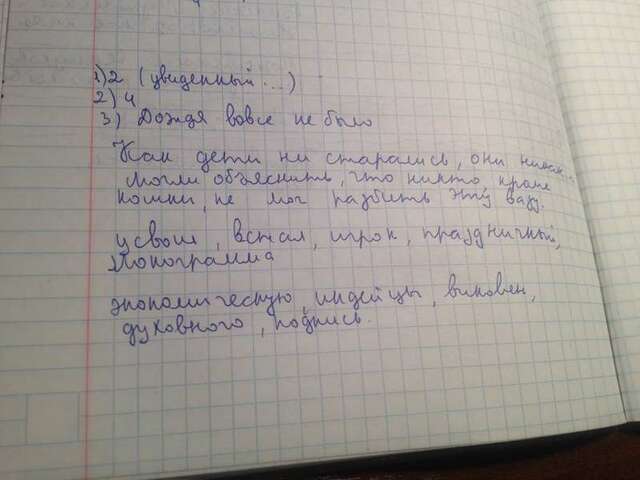 1) 2 (увиденный...)
2) 4
3) Дождя вовсе не было
Как дети ни старались, они никак
могли объяснить, что никто кроме
кошки, не мог разбить эту вазу.
усвоил, встал, игрок, праздничный,
монограмма
экономическую, индейцы, виновен,
духовного, подпись.